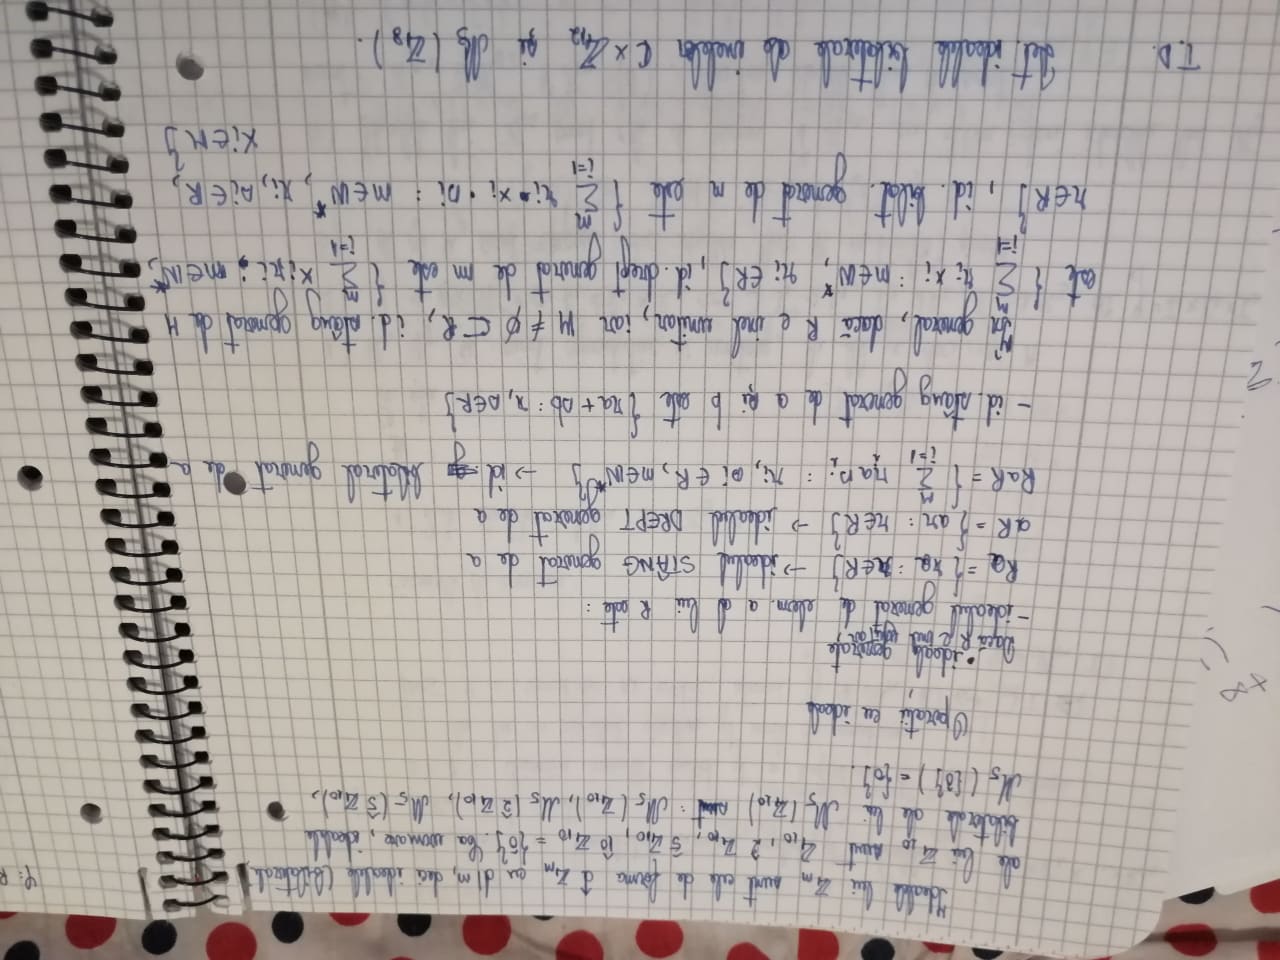 Idealele lui Zₘ sunt cele de forma d̂ Zₘ cu d|m, deci idealele (bilaterale)
ale lui Z₁₀ sunt Z₁₀, 2̂ Z₁₀, 5̂ Z₁₀, 1̂0̂ Z₁₀ = {0̂}. Ca urmare, idealele
bilaterale ale lui M₅(Z₁₀) sunt: M₅(Z₁₀), M₅(2̂ Z₁₀), M₅(5̂ Z₁₀),
M₅({0̂}) = {0}.
Operații cu ideale
• ideale generate
Dacă R e inel unitar,
- idealul generat de elem. a al lui R este:
Ra = {ra : r∈R} → idealul STÂNG generat de a
aR = {ar : r∈R} → idealul DREPT generat de a
RaR = { Σᵢ₌₁ᵐ rᵢasᵢ : rᵢ, sᵢ ∈ R, m∈N* } → id. bilateral generat de a
- id. stâng generat de a și b este {ra + sb : r, s∈R}
În general, dacă R e inel unitar, iar M ≠ ∅ ⊂ R, id. stâng generat de M
este { Σᵢ₌₁ᵐ rᵢ xᵢ : m∈N*, rᵢ∈R }, id. drept generat de m este { Σᵢ₌₁ᵐ xᵢ rᵢ : m∈N*,
r∈R }, id. bilat. generat de m este { Σᵢ₌₁ᵐ rᵢ · xᵢ · sᵢ : m∈N*, rᵢ, sᵢ∈R,
xᵢ∈M }
T.D. Det. idealele bilaterale ale inelelor C × Z₁₂ și M₃(Z₁₈).